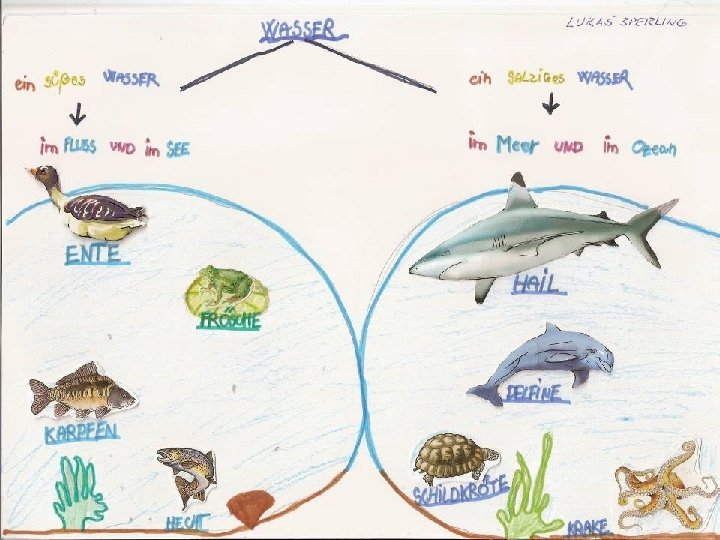 LUKAS SPERLING
WASSER
ein süßes WASSER
im FLUSS UND im SEE
ein SALZIGES WASSER
im Meer UND im Ozean
ENTE
FRÖSCHE
KARPFEN
HECHT
HAIL
DELFINE
SCHILDKRÖTE
KRAKE